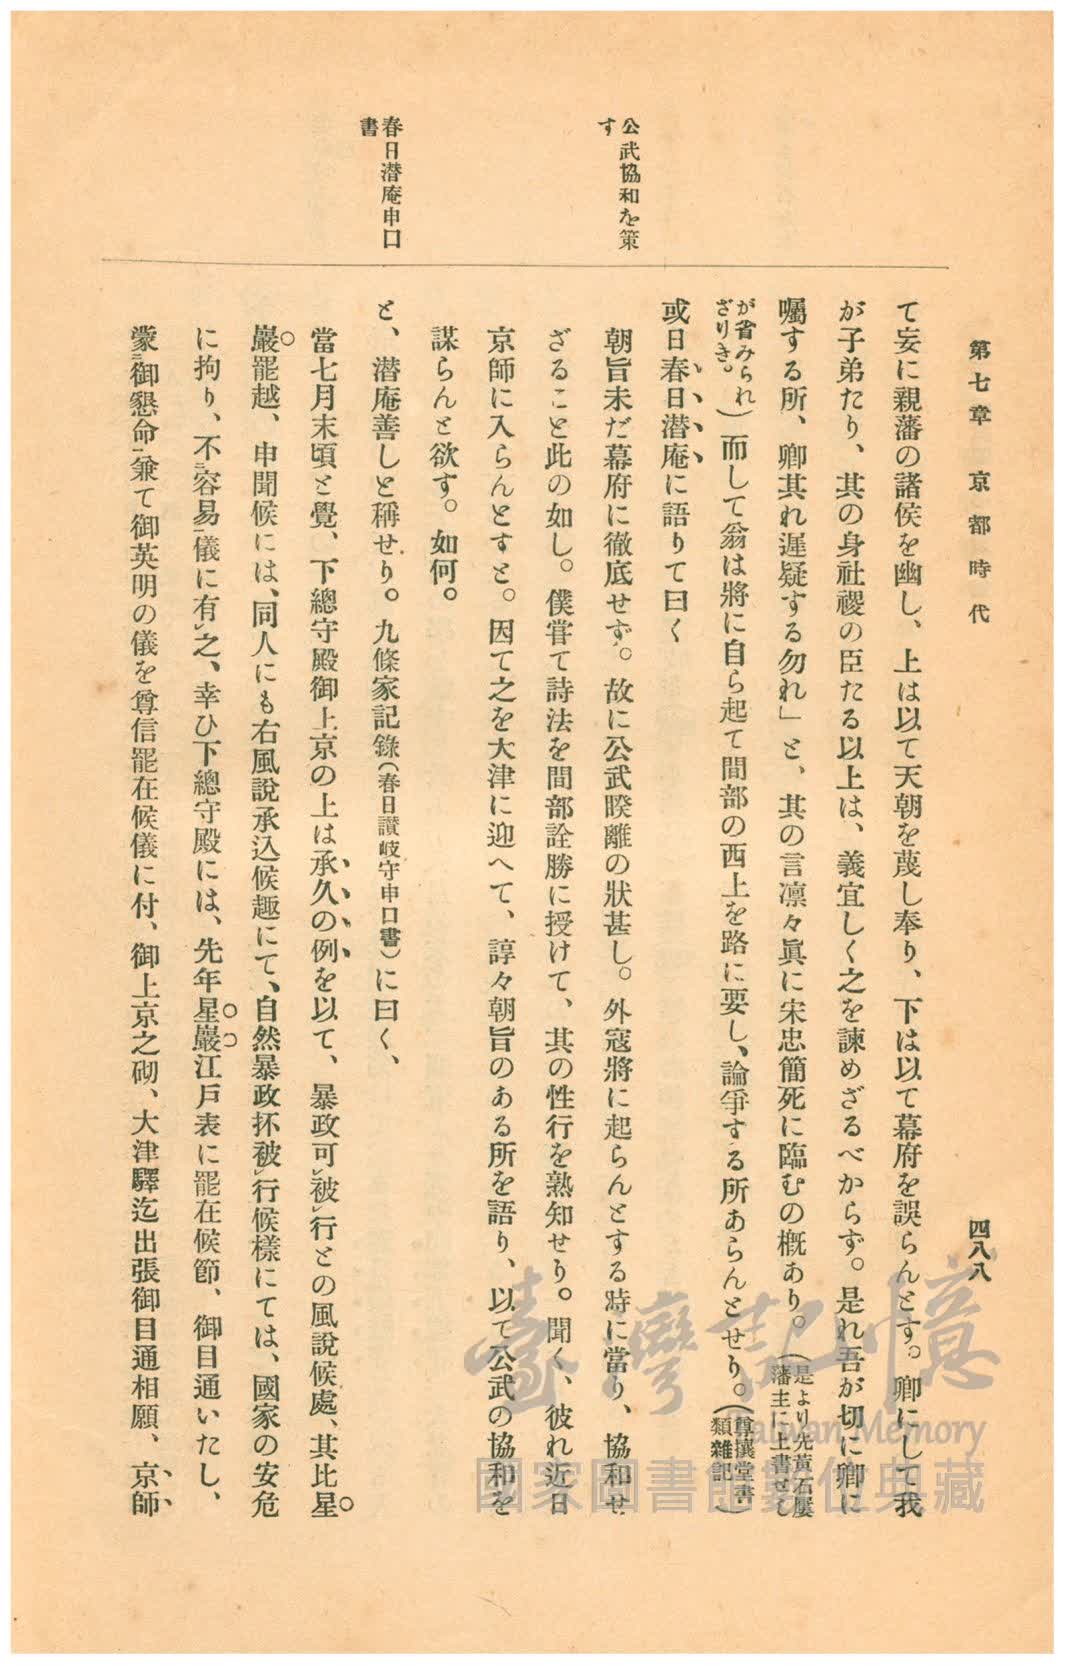 第七章 京都時代
四八八
公武協和を策
す
春日潛庵申口
書
て妄に親藩の諸侯を幽し、上は以て天朝を蔑し奉り、下は以て幕府を誤らんとす。卿にして我
が子弟たり、其の身社稷の臣たる以上は、義宜しく之を諫めざるべからず。是れ吾が切に卿に
囑する所、卿其れ遲疑する勿れ」と、其の言凛々眞に宋忠簡死に臨むの概あり。(是より先黄石屢藩主に上書せし
が省みられざりき。)而して翁は將に自ら起て間部の西上を路に要し、論爭する所あらんとせり。(尊攘堂書類雜記)
或日春日潛庵に語りて曰く
朝旨未だ幕府に徹底せず。故に公武睽離の狀甚し。外寇將に起らんとする時に當り、協和せ
ざること此の如し。僕嘗て詩法を間部詮勝に授けて、其の性行を熟知せり。聞く、彼れ近日
京師に入らんとすと。因て之を大津に迎へて、諄々朝旨のある所を語り、以て公武の協和を
謀らんと欲す。如何。
と、潛庵善しと稱せり。九條家記錄(春日讃岐守申口書)に曰く、
當七月末頃と覺、下總守殿御上京の上は承久の例を以て、暴政可㆑被㆑行との風說候處、其比星
巖罷越、申聞候には、同人にも右風說承込候趣にて、自然暴政抔被㆑行候樣にては、國家の安危
に拘り、不㆓容易㆒儀に有㆑之、幸ひ下總守殿には、先年星巖江戸表に罷在候節、御目通いたし、
蒙㆓御懇命㆒兼て御英明の儀を尊信罷在候儀に付、御上京之砌、大津驛迄出張御目通相願、京師
臺灣記憶
Taiwan Memory
國家圖書館數位典藏